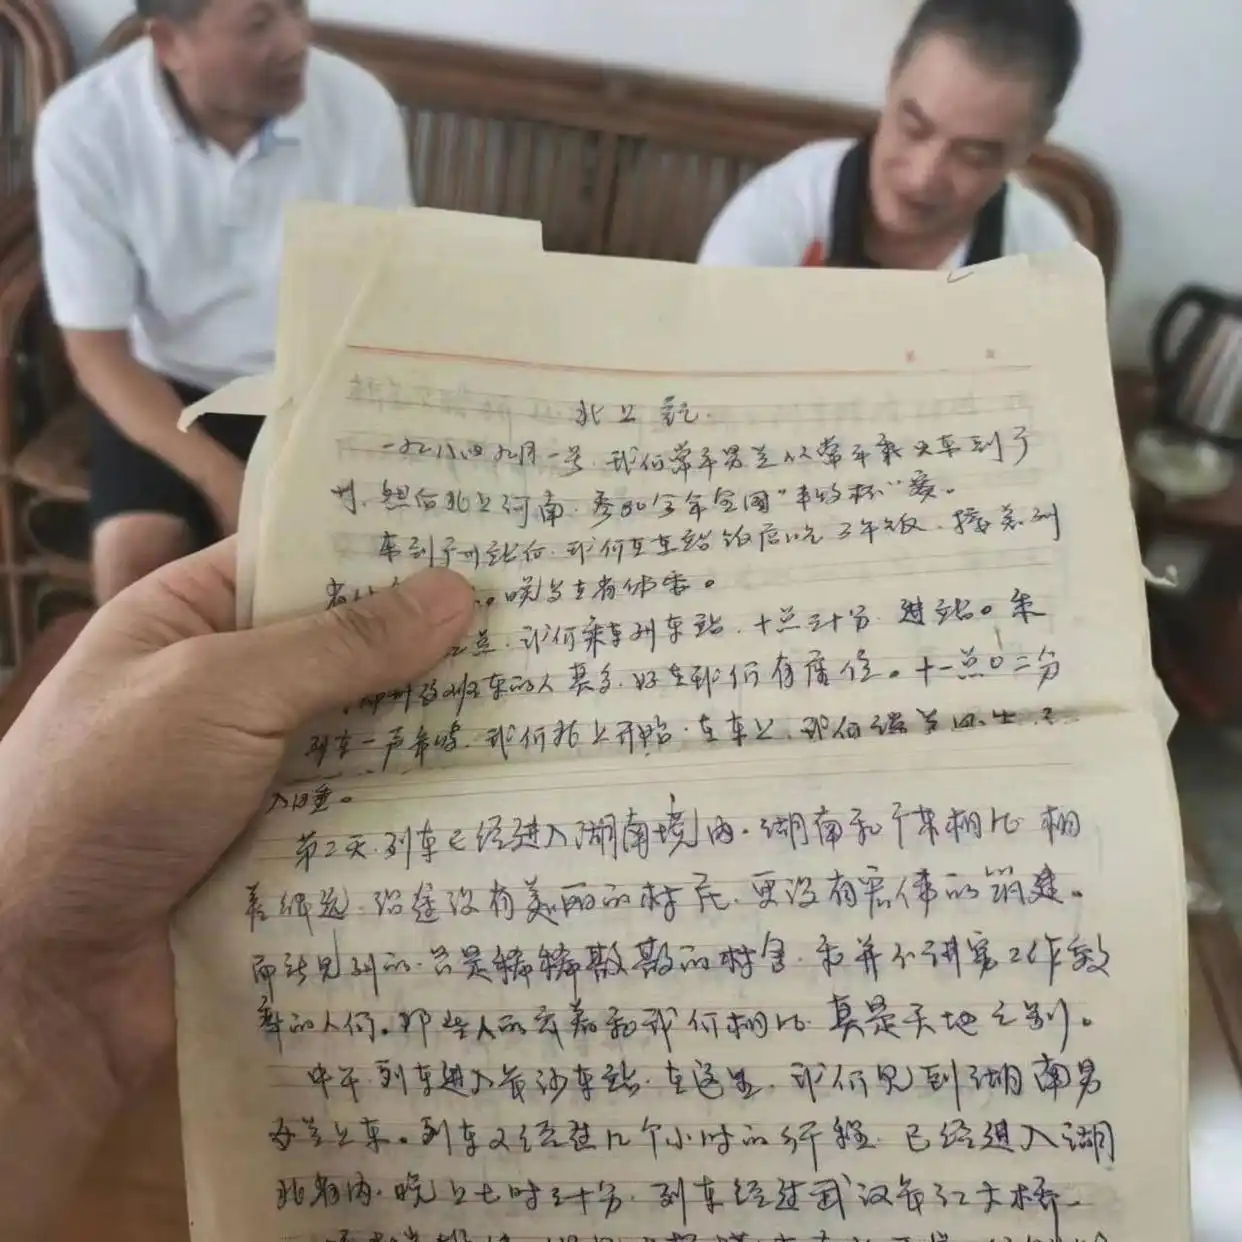 第 页
北上记
一九八四九月一号，我们常平男羊从常平乘火车到广
州，然后北上河南，参加今年全国"丰收杯"赛。
车到广州站后，我们在车站饭店吃了午饭，接着到
省 。晚上在省体委。
点，我们乘车到车站，十点三十分，进站。乘
班车的人甚多，好在我们有座位。十一点〇二分
列车一声长鸣，我们北上开始，在车上，我们
入睡。
第二天，列车已经进入湖南境内，湖南和广东相比，相
差很远，沿途没有美丽的村庄，更没有宏伟的筑建。
而能见到的，只是稀稀散散的村舍，和并不讲究工作效
率的人们。那些人的衣着和我们相比，真是天地之别。
中午，列车进入长沙车站，在这里，我们见到湖南男
女羊上车。列车又经过几个小时的行程，已经进入湖
北省内，晚上七时三十分，列车经过武汉长江大桥。